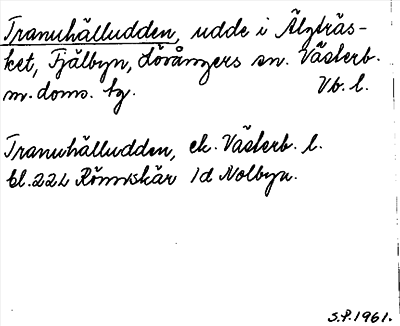 Tranuhälludden, udde i Älgträs-
ket, Fjälbyn, Lövångers sn. Västerb.
n. doms. tg. Vb. l.
Tranuhälludden, ek. Västerb. l.
bl. 222 Rönnskär 1d Nolbyn.
S.P. 1961.